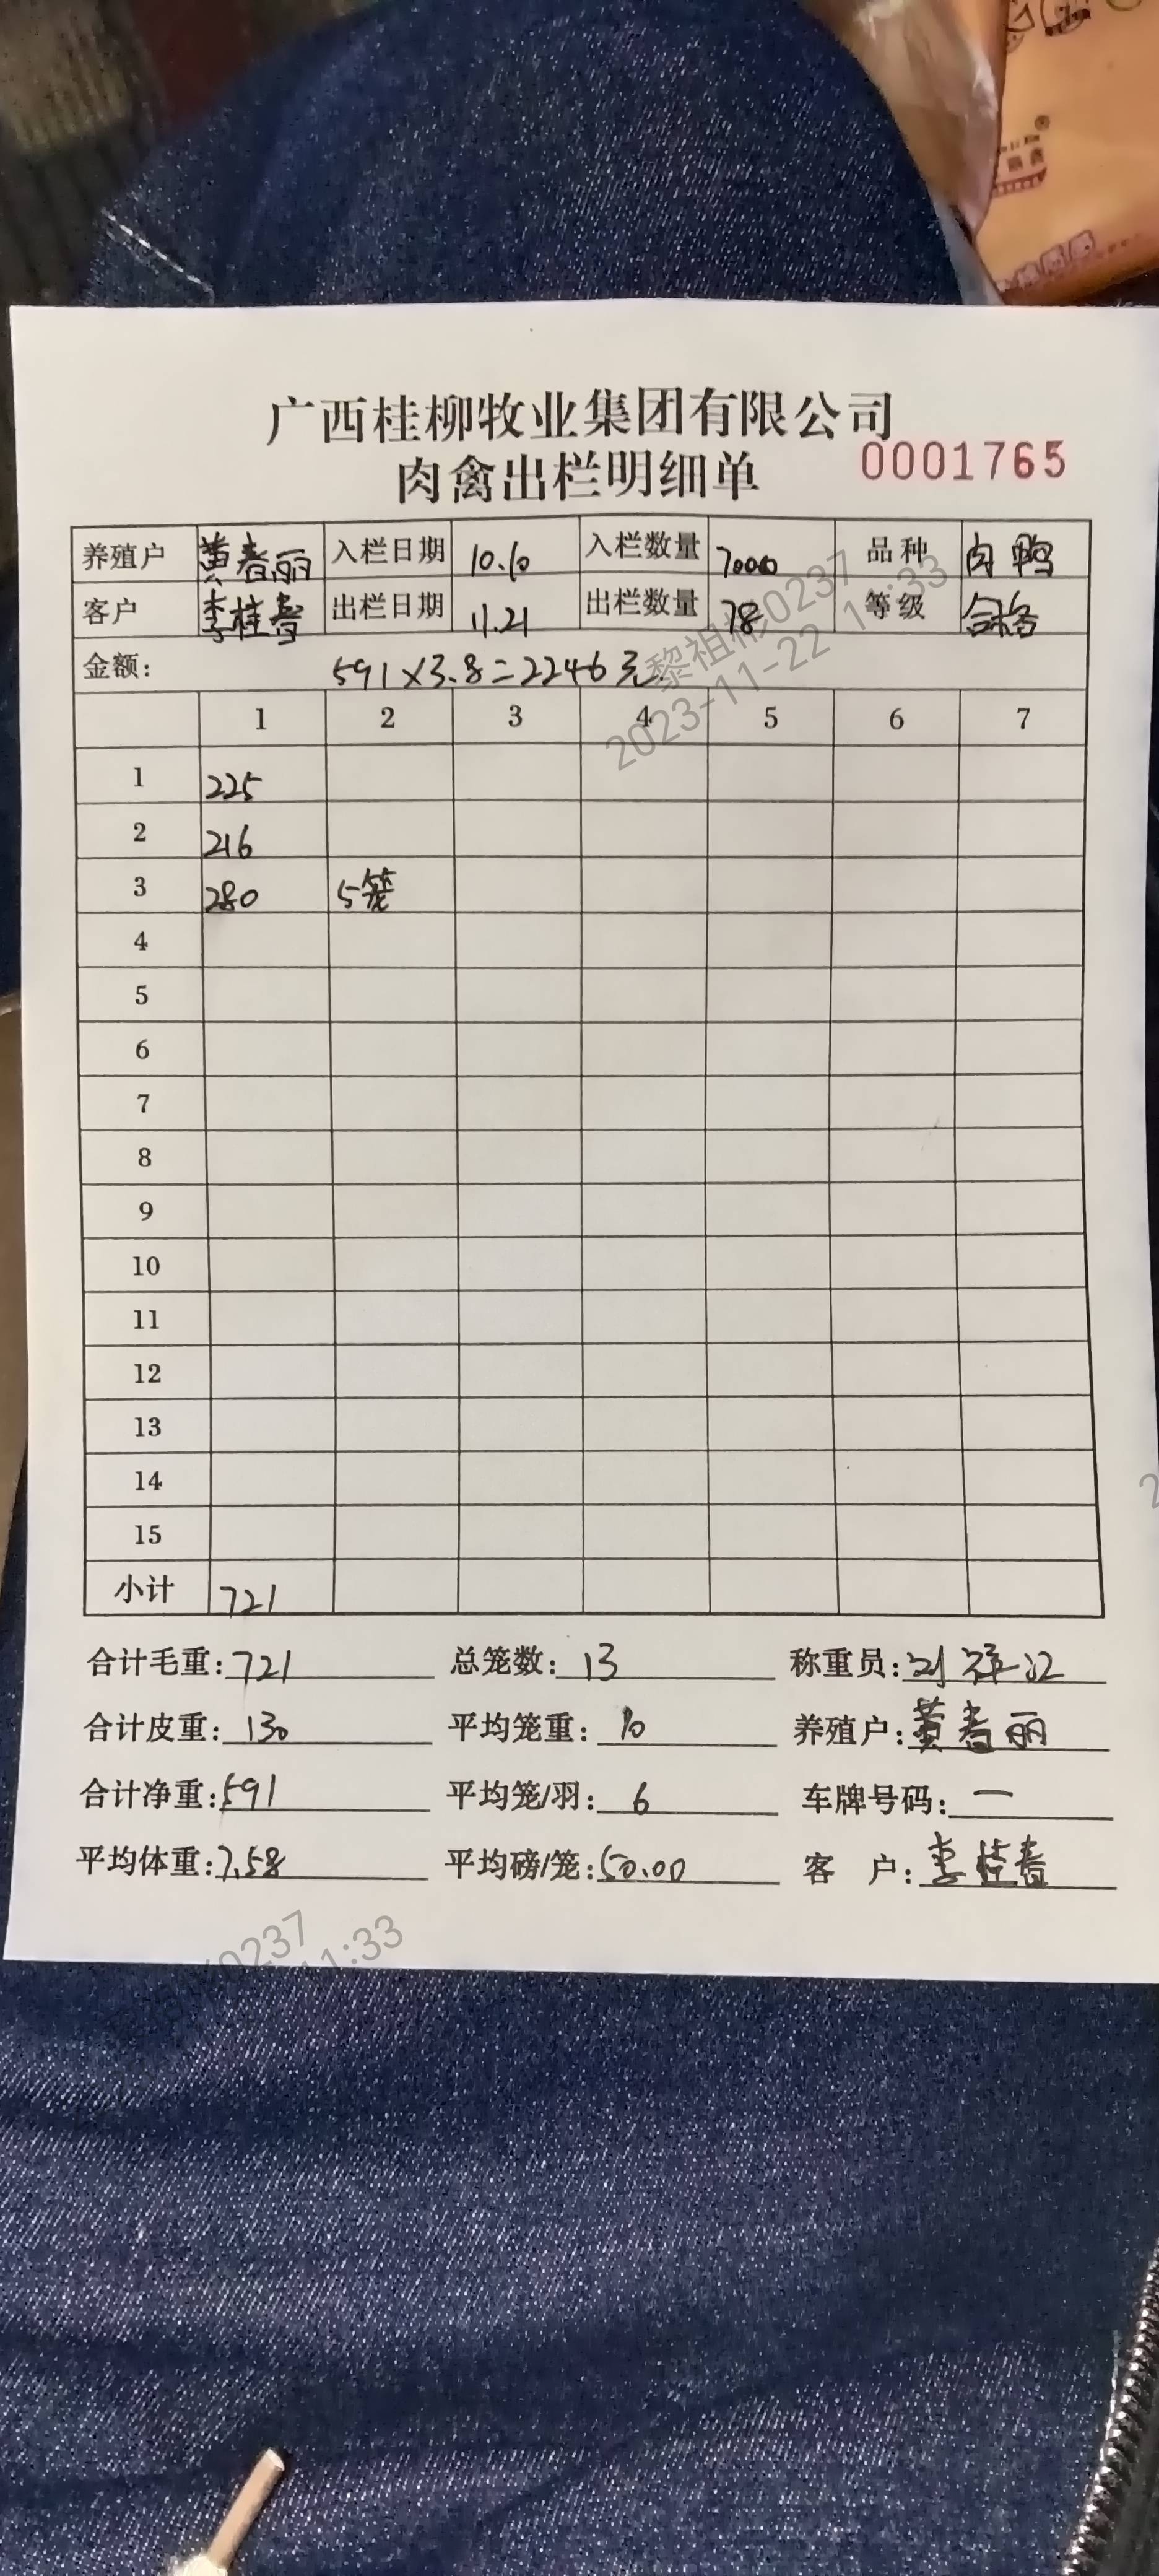 广西桂柳牧业集团有限公司
肉禽出栏明细单 0001765
养殖户 黄春丽 入栏日期 10.10 入栏数量 7000 品种 肉鸭
客户 李桂春 出栏日期 11.21 出栏数量 78 等级 合格
金额: 591×3.8=2246元.
1 2 3 4 5 6 7
1 225
2 216
3 280 5笼
4
5
6
7
8
9
10
11
12
13
14
15
小计 721
合计毛重:721 总笼数:13 称重员:
合计皮重:130 平均笼重:10 养殖户:黄春丽
合计净重:591 平均笼/羽:6 车牌号码:一
平均体重:7.58 平均磅/笼:50.00 客 户:李桂春
黎祖彬0237
2023-11-22 11:33
0237
11:33